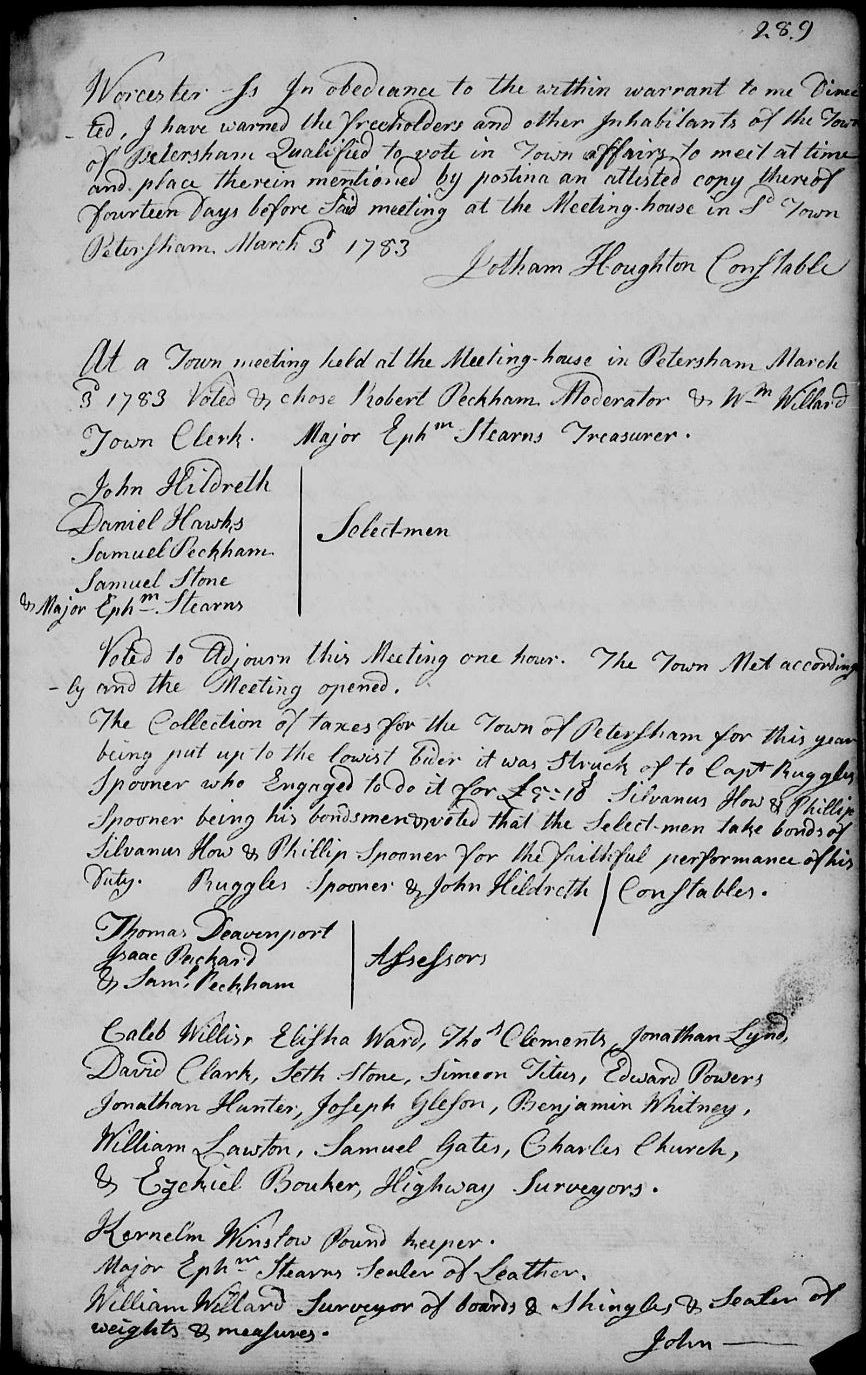 289
Worcester Ss In obediance to the within warrant to me Direc
-ted, I have warned the freeholders and other Inhabitants of the Town
of Petersham Qualified to vote in Town affairs to meet at time
and place therein mentioned by posting an attisted copy thereof
fourteen Days before Said meeting at the Meeting-house in Sd Town
Petersham March 3d 1783
Jotham Houghton Constable
At a Town meeting held at the Meeting-house in Petersham March
3d 1783 Voted & chose Robert Peckham Moderator & Wm Willard
Town Clerk. Major Ephm Stearns Treasurer.
John Hildreth
Daniel Hawks
Samuel Peckham
Samuel Stone
& Major Ephm. Stearns
Select-men
Voted to Adjourn this Meeting one hour. The Town Met according
-ly and the Meeting opened.
The Collection of taxes for the Town of Petersham for this year
being put up to the lowist bider it was Struck of to Capt Ruggles
Spooner who Engaged to do it for Silvanus How & Phillip
Spooner being his bondsmen & voted that the Select-men take bonds of
Silvanus How & Phillip Spooner for the faithful performance of his
Duty. Ruggles Spooner & John Hildreth | Constables.
Thomas Deavenport
Isaac Packard
& Saml Peckham
Assessors
Caleb Willis, Elisha Ward, Thos Clements, Jonathan Lynd,
David Clark, Seth Stone, Simeon Titus, Edward Powers
Jonathan Hunter, Joseph Gleson, Benjamin Whitney,
William Lawton, Samuel Gates, Charles Church,
& Ezekiel Bouker, Highway Surveyors.
Kernelm Winslow Pound keeper.
Major Ephm Stearns Sealer of Leather.
William Willard Surveyor of boards & Shingles & Sealer of
weights & measures.
John